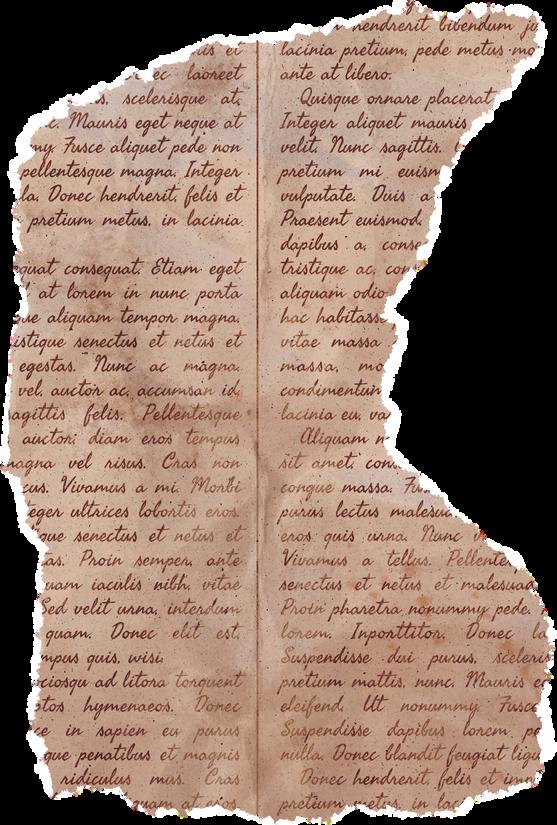 et
laoreet
scelerisque at,
Mauris eget neque at
my. Fusce aliquet pede non
pellentesque magna. Integer
la. Donec hendrerit, felis et
pretium metus, in lacinia
quat consequat. Etiam eget
at lorem in nunc porta
aliquam tempor magna.
istique senectus et netus et
egestas. Nunc ac magna.
vel, auctor ac, accumsan id,
agittis felis. Pellentesque
auctor, diam eros tempus
magna vel risus. Cras non
cus. Vivamus a mi. Morbi
eger ultrices lobortis eros.
que senectus et netus et
as. Proin semper, ante
uam iaculis nibh, vitae
Sed velit urna, interdum
quam. Donec elit est,
mpus quis, wisi.
ociosqu ad litora torquent
ptos hymenaeos. Donec
ce in sapien eu purus
que penatibus et magnis
ridiculus mus. Cras
quam at eros
hendrerit bibendum ju
lacinia pretium, pede metus mo
ante at libero.
Quisque ornare placerat
Integer aliquet mauris
velit. Nunc sagittis.
pretium mi, euism
vulputate. Duis a
Praesent euismod,
dapibus a, conse
tristique ac, con
aliquam odio
hac habitass
vitae massa
massa, mo
condimentum
lacinia eu, va
Aliquam n
sit amet, con
congue massa. Fu
purus lectus malesua
eros quis urna. Nunc
Vivamus a tellus. Pellente
senectus et netus et malesuad
Proin pharetra nonummy pede.
lorem. Inporttitor. Donec la
Suspendisse dui purus, sceleris
pretium mattis, nunc. Mauris e
eleifend. Ut nonummy. Fusce
Suspendisse dapibus lorem pe
nulla. Donec blandit feugiat ligu
Donec hendrerit, felis et im
pretium metus, in lac